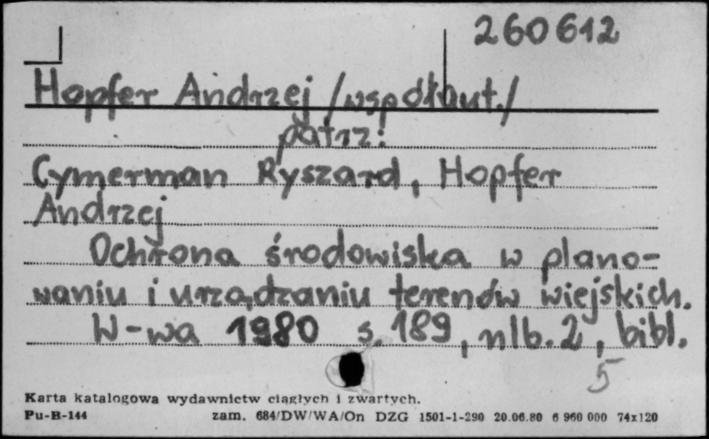 260612
Hopfer Andrzej /współaut./
patrz:
Cymerman Ryszard, Hopfer
Andrzej
Ochrona środowiska w plano-
waniu i urządzaniu terenów wiejskich.
W-wa 1980 s. 189, nlb. 2, bibl.
5
Karta katalogowa wydawnictw ciągłych i zwartych.
Pu-B-144 zam. 684/DW/WA/On DZG 1501-1-290 20.06.80 6 960 000 74x120